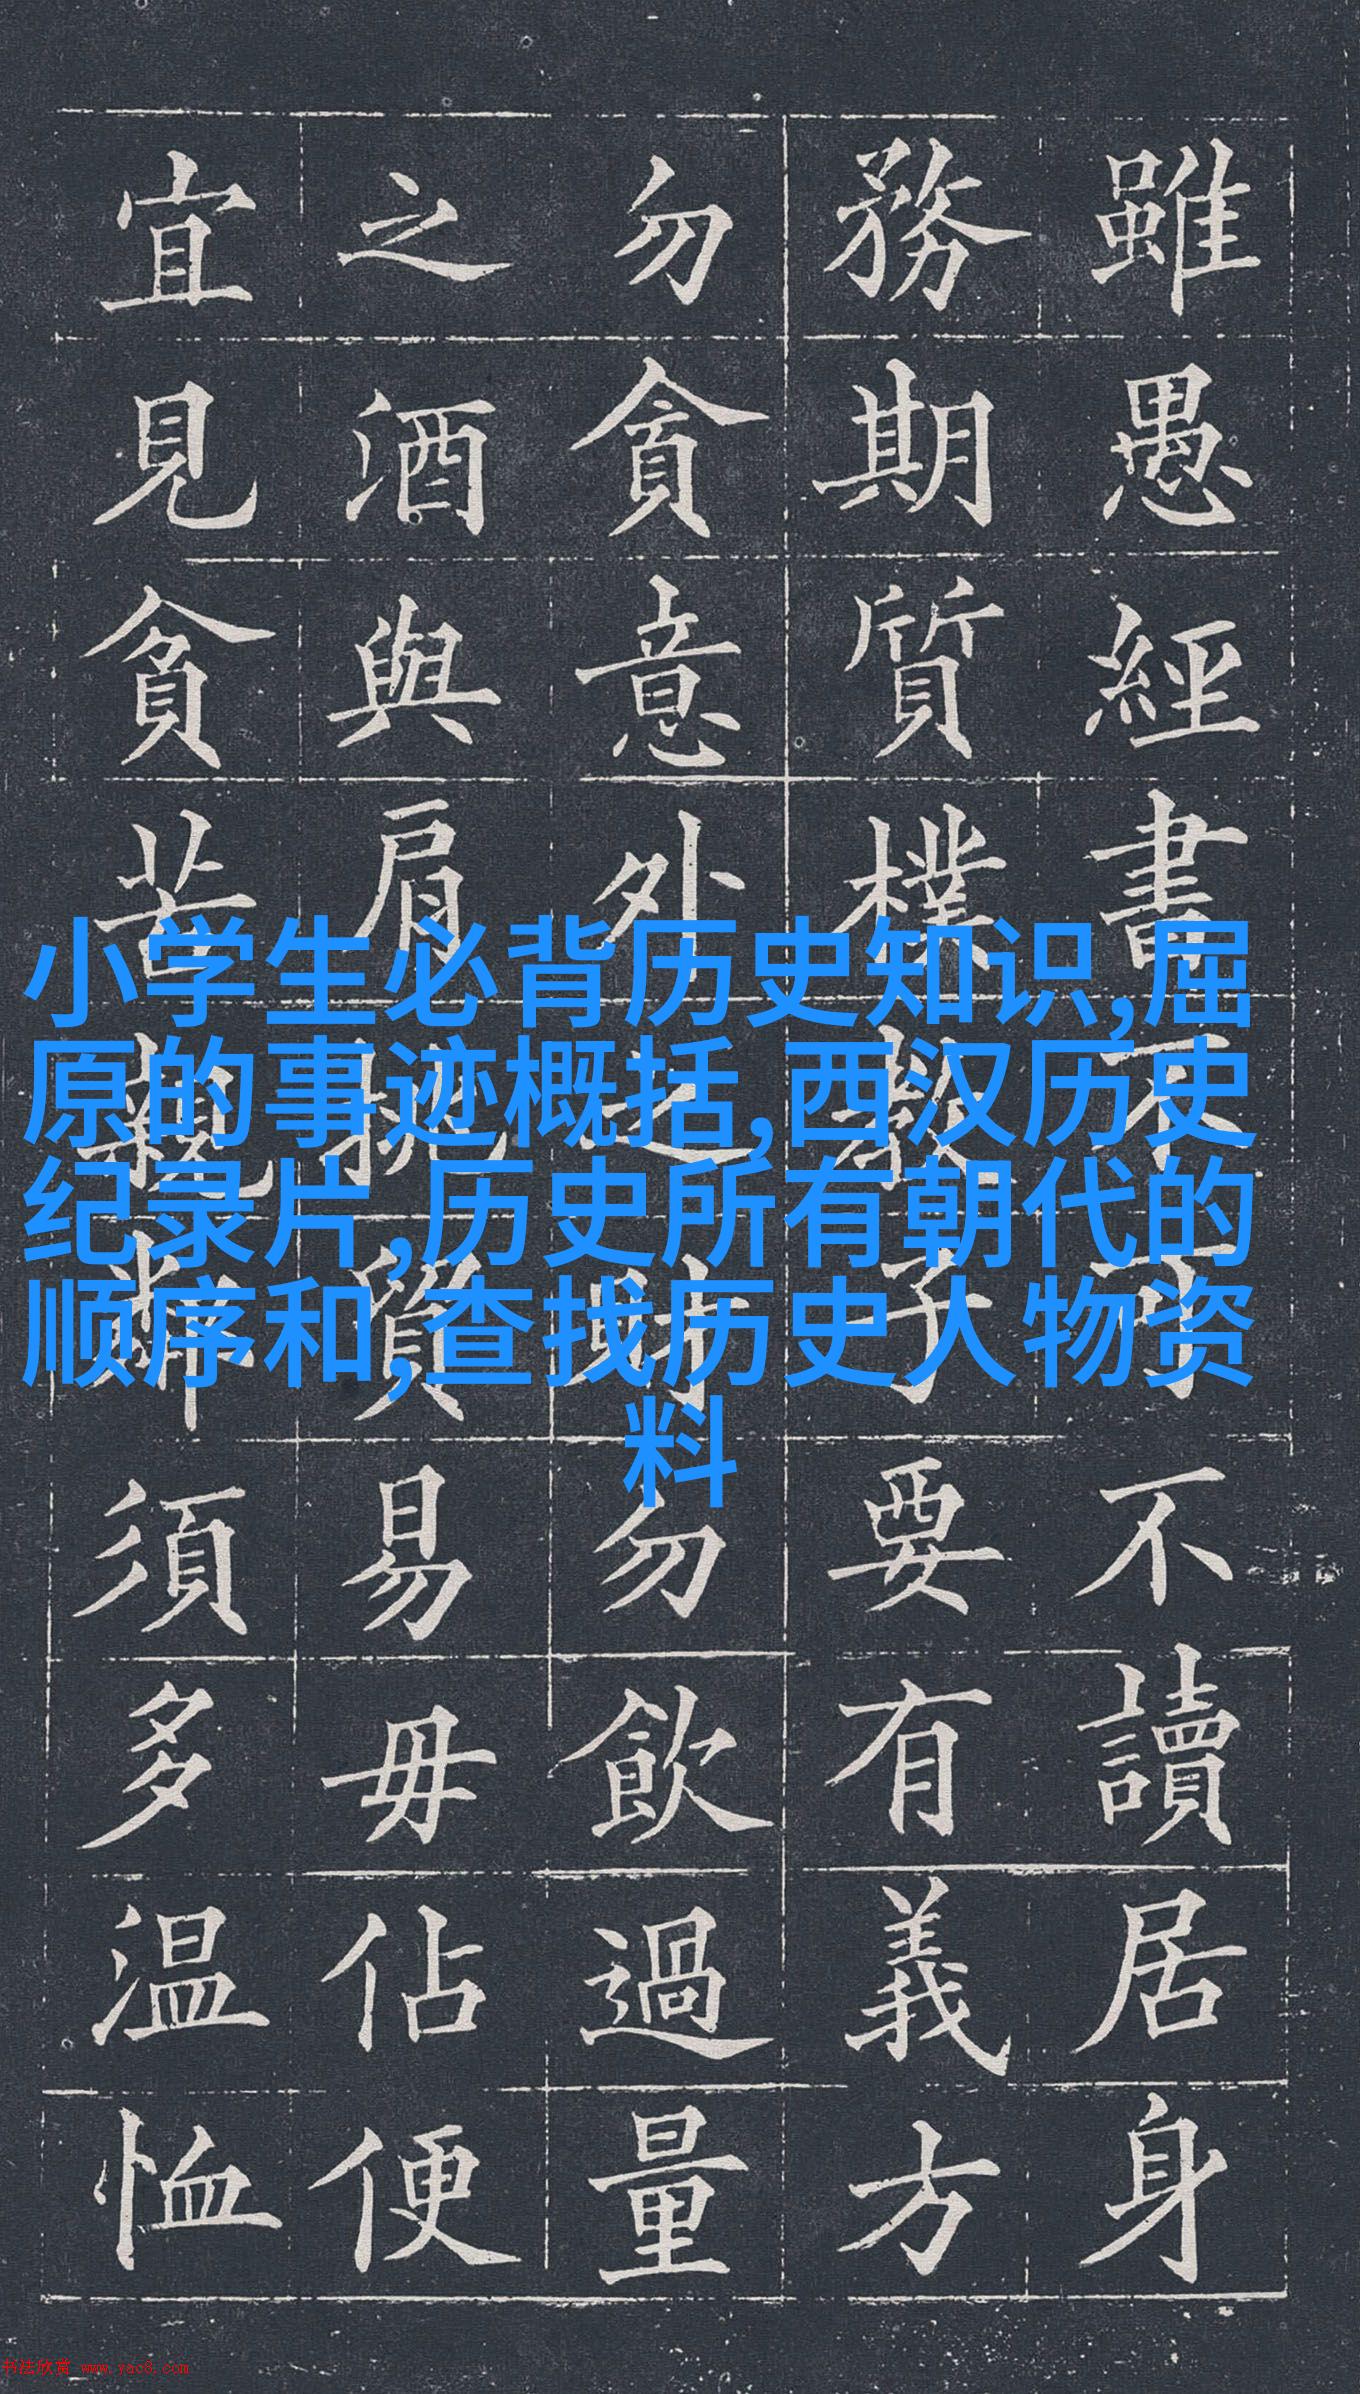 雖愚經書不可不讀居身
務期質樸教子要有義方
勿貪意外之財勿飲過量
之酒與肩挑貿易毋佔便
宜見貧苦親鄰須多温恤
小学生必背历史知识,屈
原的事迹概括,西汉历史
纪录片,历史所有朝代的
顺序和,查找历史人物资
料
书法欣赏 www.yac8.com